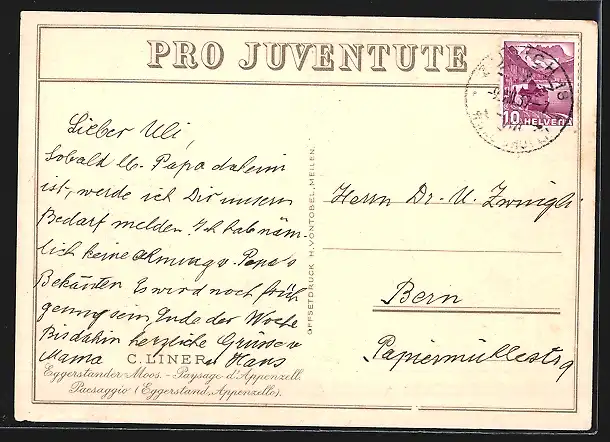 PRO JUVENTUTE
10 HELVETIA
Lieber Uli,
Sobald lb. Papa daheim
ist, werde ich Dir unsern
Bedarf melden. Ich hab näm-
lich keine Ahnung v. Papa's
Bekannten Es wird noch früh
genug sein, Ende der Woche
Bis dahin herzliche Grüsse v
Mama u Hans
C. LINER
Eggerstander-Moos. - Paysage d'Appenzell.
Paesaggio (Eggerstand, Appenzello).
OFFSETDRUCK H. VONTOBEL, MEILEN.
Herrn Dr. U. Zwingli
Bern
Papiermühlestr 9